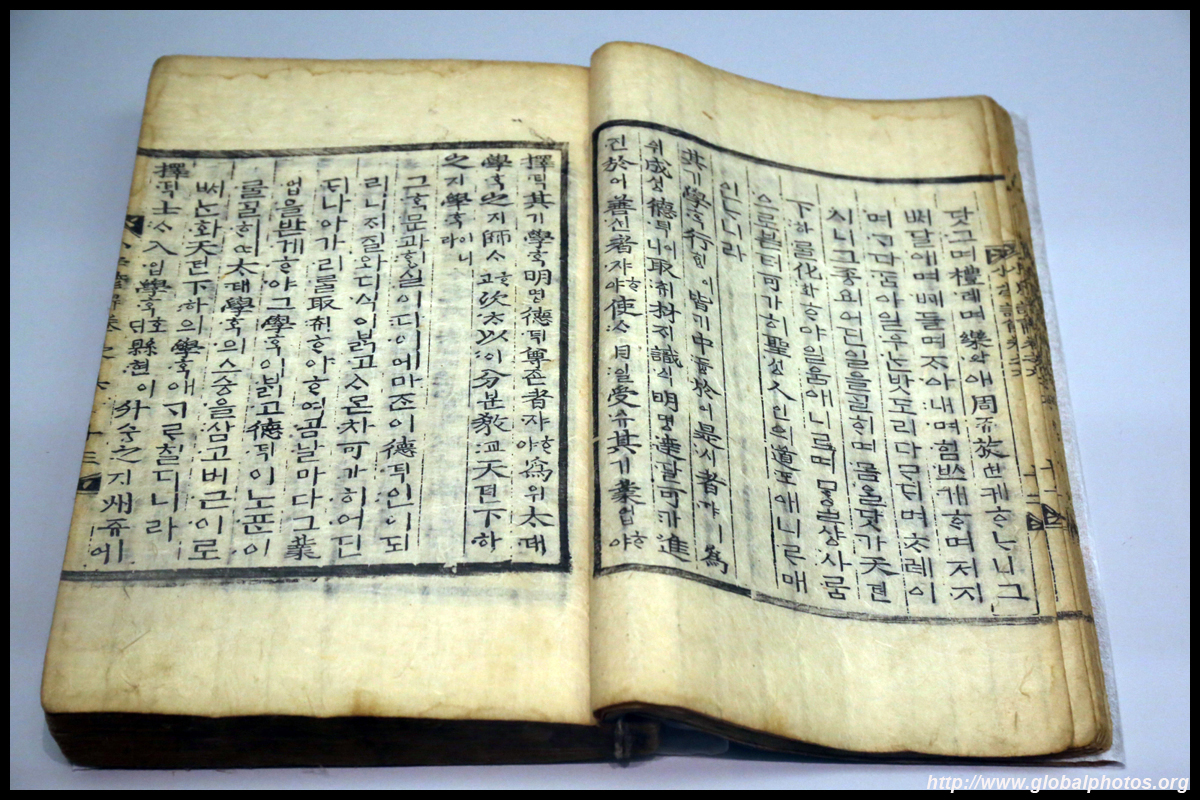 닷그며禮례며樂악애周쥬旋션케ᄒᆞᄂᆞ니그
ᄡᅥ달애며ᄢᅦ들며ᄌᆞ아내며힘ᄡᅳ게ᄒᆞ며저지
며ᄀᆞ다ᄃᆞᆷ아일우ᄂᆞᆫ밧도리다ᄆᆞᄃᆡ며ᄎᆞ례이
시니그종요어딘일을ᄀᆞᆯᄒᆡ며몸을닷가天텬
下하ᄅᆞᆯ化화ᄒᆞ야일움애니르며ᄆᆞᄋᆞᆯ샹사ᄅᆞᆷ
으로브터可가히聖셩人인의道도애니르매
인ᄂᆞ니라
其기學ᄒᆞᆨ行ᄒᆡᆼ이皆ᄀᆡ中듕於어是시者쟈ㅣ爲
위成셩德덕이니取ᄎᆔ材ᄌᆡ識식明명達달可가進
진於어善션者쟈ᄒᆞ야使ᄉᆞ日일受슈其기業업ᄒᆞ야
擇ᄐᆡᆨ其기學ᄒᆞᆨ明명德덕尊존者쟈ᄒᆞ야爲위太태
學ᄒᆞᆨ之지師ᄉᆞᄒᆞ고次ᄎᆞ以이分분敎교天텬下하
之지學ᄒᆞᆨ이니라
그ᄒᆞᆨ문과ᄒᆡᆼ실이다이에마ᄌᆞᆫ이德덕인이되
리니ᄌᆡ질와디식이ᄇᆞᆰ고ᄉᆞᄆᆞᆺ차可가히어딘
ᄃᆡ나아가리ᄅᆞᆯ取ᄎᆔᄒᆞ야ᄒᆞ여곰날마다그業
업을받게ᄒᆞ야그學ᄒᆞᆨ이ᄇᆞᆰ고德덕이노ᄑᆞᆫ이
ᄅᆞᆯᄀᆞᆯᄒᆡ여太태學ᄒᆞᆨ의스승을삼고버근이로
ᄡᅥᄂᆞᆫ화天텬下하의學ᄒᆞᆨ애ᄀᆞᄅᆞ칠디니라
擇ᄐᆡᆨ士ᄉᆞ入입學ᄒᆞᆨ호ᄃᆡ縣현이升승之지州쥬에
http://www.globalphotos.org